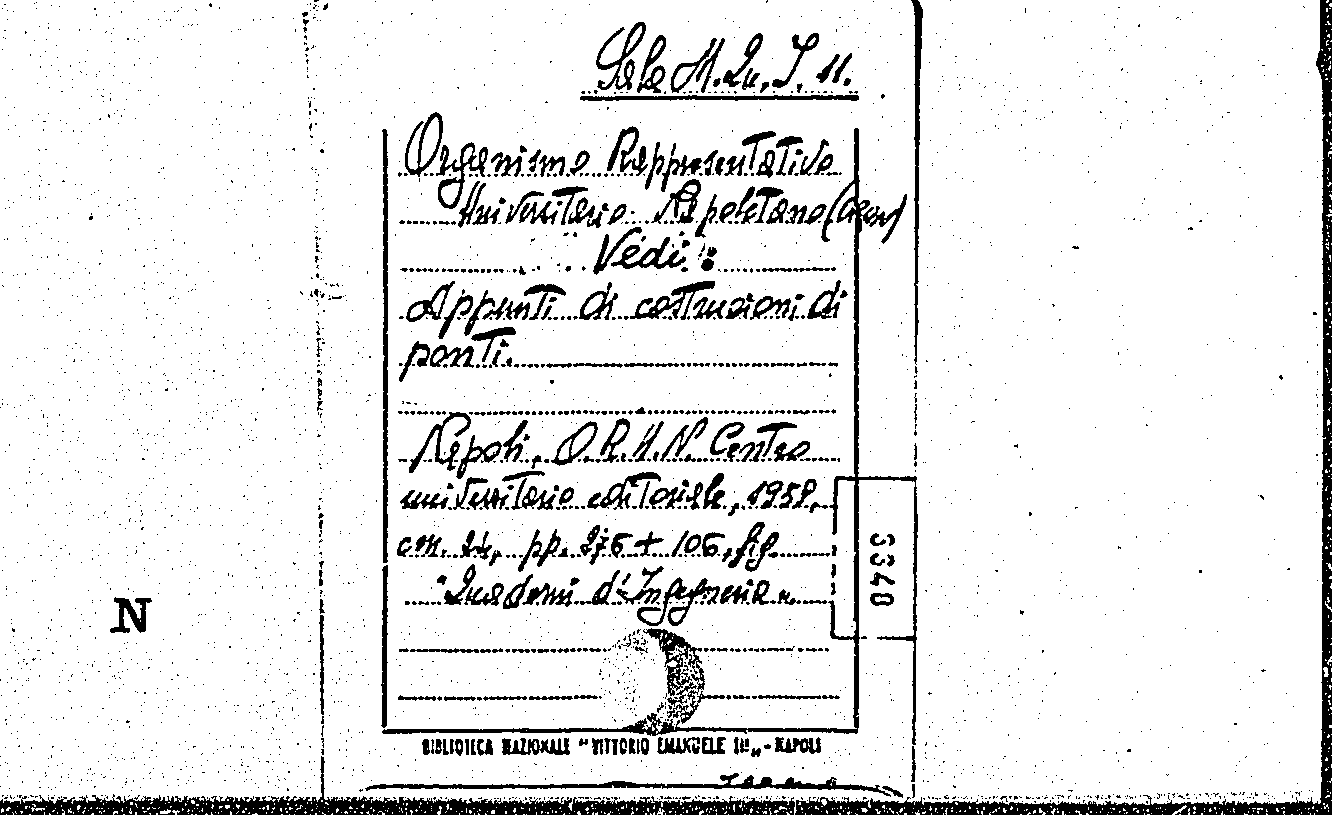 Sala M. Qu. I. 11.
Organismo Rappresentativo
Universitario Napoletano (Orun)
Vedi:
Appunti di costruzioni di
ponti.
Napoli, O.R.U.N. Centro
universitario editoriale, 1958,
cm. 24, pp. 276 + 106, fig.
"Quaderni d'Ingegneria".
3340
N
BIBLIOTECA NAZIONALE "VITTORIO EMANUELE III" - NAPOLI